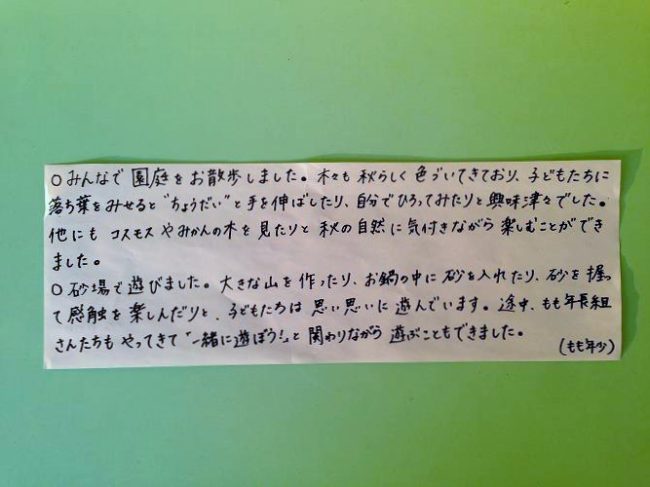 ○みんなで園庭をお散歩しました。木々も秋らしく色づいてきており、子どもたちに
落ち葉をみせると“ちょうだい”と手を伸ばしたり、自分でひろってみたりと興味津々でした。
他にもコスモスやみかんの木を見たりと秋の自然に気付きながら楽しむことができ
ました。
○砂場で遊びました。大きな山を作ったり、お鍋の中に砂を入れたり、砂を握っ
て感触を楽しんだりと、子どもたちは思い思いに遊んでいます。途中、もも年長組
さんたちもやってきて“一緒に遊ぼう!„と関わりながら遊ぶこともできました。
(もも年少)